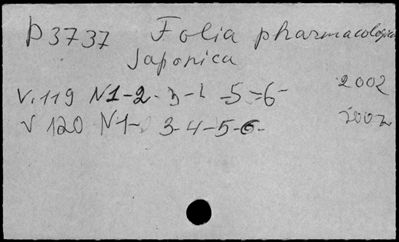 P3737 Folia pharmacologica
Japonica
V.119 N1-2-3-4-5-6- 2002
V 120 N1- 3-4-5-6- 2002